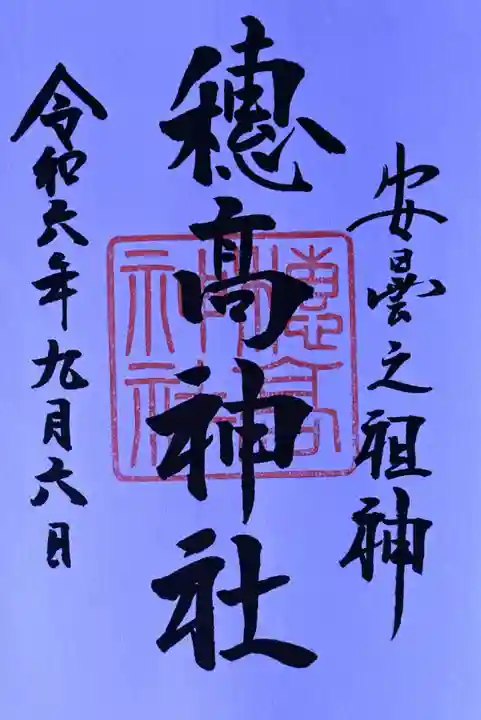 安曇之祖神
穗髙神社
穂高神社
令和六年九月六日